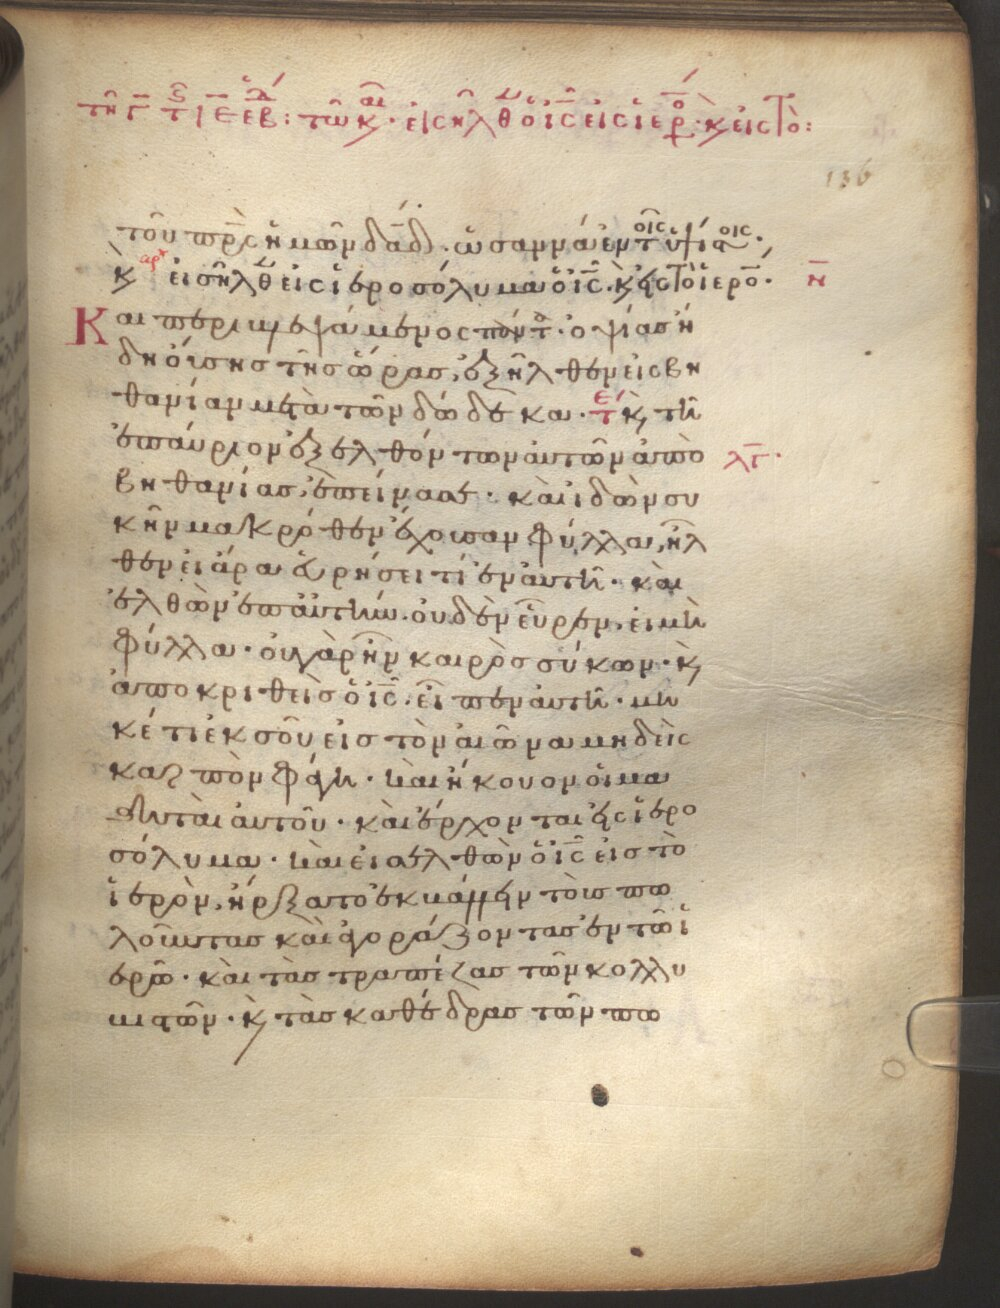 τῆ γ̅ τῆς ι̅ε̅ ἑβδ: τῶ κ̣αι. εἰσῆλθεν ὁ ι̅ς̅ εἰς ἱερο. κ̀ εἰς τὸ:
136
τοῦ π̅ρ̅ς ἡμῶν δ̅α̅δ̅. ὡσαννὰ ἐν τοῖς ὑψίστοις.
κ̀ αρχ εἰσῆλθεν εἰς ἱεροσόλυμα ὁ ι̅ς̅. κ̀ εἰς τὸ ἱερόν. ν̅
Και περιβλεψάμενος πάντα. ὀψίας ἤ
δη οὔσης τῆς ὥρας, ἐξῆλθεν εἰς βη
θανίαν μετὰ τῶν δώδεκα. τε κ̀ τῆ
ἐπαύριον ἐξελθόντων αὐτῶν ἀπὸ λ̅γ̅.
βηθανίας, ἐπείνασε. καὶ ἰδὼν συ
κῆν μακρόθεν ἔχουσαν φύλλα, ἦλ
θεν εἰ ἄρα εὑρήσει τί ἐν αὐτῆ. καὶ
ἐλθὼν ἐπ αὐτὴν. οὐδὲν εὗρεν, εἰ μὴ
φύλλα. οὐ γὰρ ἦν καιρὸς σύκων. κ̀
ἀποκριθεὶς ὁ ι̅ς̅. εἶπεν αὐτῆ. μη
κέτι ἐκ σοῦ εἰς τὸν αἰῶνα μηδεὶς
καρπὸν φάγη. καὶ ἤκουον οἱ μα
θηταὶ αὐτοῦ. καὶ ἔρχονται εἰς ἱερο
σόλυμα. καὶ εἰσελθὼν ὁ ι̅ς̅ εἰς τὸ
ἱερὸν, ἤρξατο ἐκβάλλειν τοὺς πω
λοῦντας καὶ ἀγοράζοντας ἐν τῶ ἱ
ερῶ. καὶ τὰς τραπέζας τῶν κολλυ
βιστῶν. κ̀ τὰς καθέδρας τῶν πω